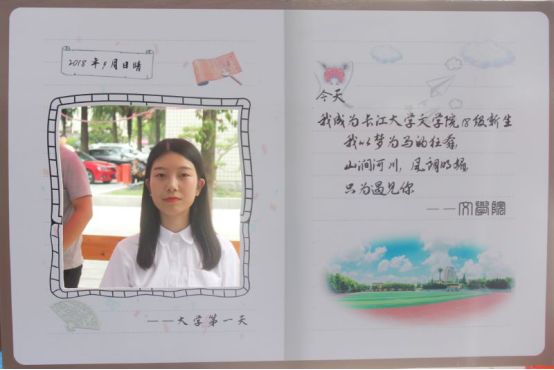 2018年9月日晴
——大学第一天
今天
我成为长江大学文学院18级新生
我以梦为马的社春,
山涧河川,风调竹摇,
只为遇见你
——文学院